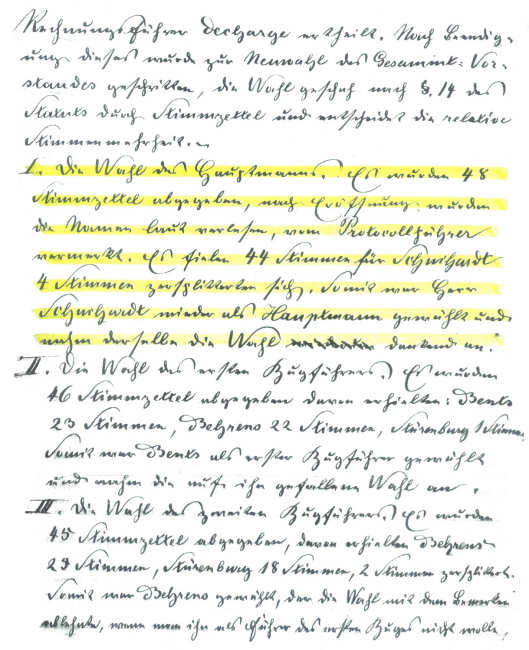 Rechnungsführer Decharge ertheilt. Nach Beendig-
ung dieses wurde zur Neuwahl des Gesammt-Vor-
standes geschritten, die Wahl geschah nach §. 14 des
Statuts durch Stimmzettel und entscheidet die relative
Stimmenmehrheit. –
I. Die Wahl des Hauptmanns. Es wurden 48
Stimmzettel abgegeben, nach Eröffnung wurden
die Namen laut verlesen, vom Protocollführer
vermerkt. Es fielen 44 Stimmen für
4 Stimmen zersplitterten sich. Somit war Herr
wieder als Hauptmann gewählt und
nahm derselbe die Wahl dankend an.
II. Die Wahl des ersten Zugführers. Es wurden
46 Stimmzettel abgegeben davon erhielten: Benks
23 Stimmen, Behrens 22 Stimmen, Stürenburg 1 Stimme,
Somit war Benks als erster Zugführer gewählt
und nahm die auf ihn gefallene Wahl an.
III. Die Wahl des zweiten Zugführers. Es wurden
45 Stimmzettel abgegeben, davon erhielten Behrens
25 Stimmen, Stürenburg 18 Stimmen, 2 Stimmen zersplittert.
Somit war Behrens gewählt, der die Wahl mit dem Bemerken
ablehnte, wenn man ihn als Führer des ersten Zuges nicht wolle,